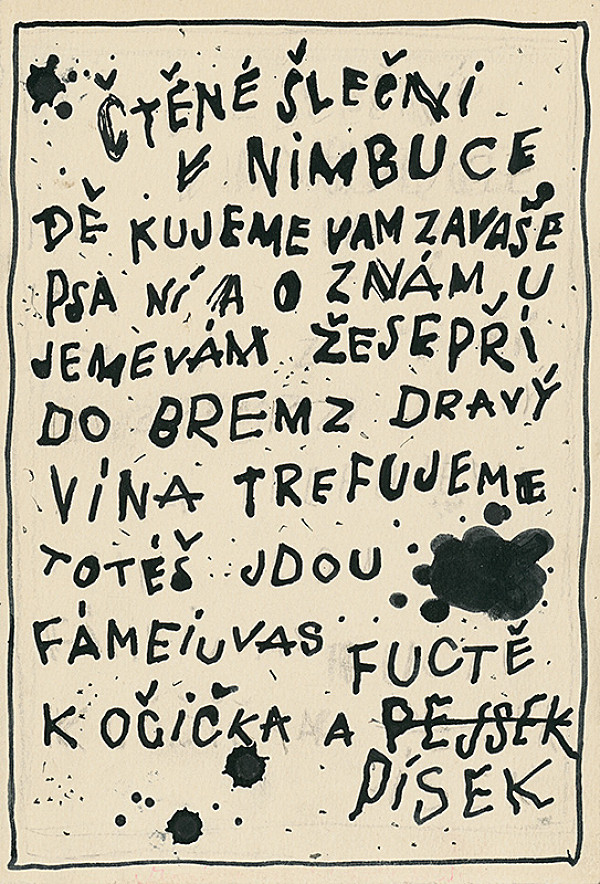 ČTĚNÉ ŠLEČNI
V NIMBUCE
DĚ KUJEME VAM ZAVAŠE
PSA NÍ A O ZNÁM U
JEMEVÁM ŽESEPŘÍ
DO BREMZ DRAVÝ
VÍNA TREFUJEME
TOTÉŠ JDOU
FÁMEIUVAS
FUCTĚ
K OČIČKA A PEJSSEK
PÍSEK